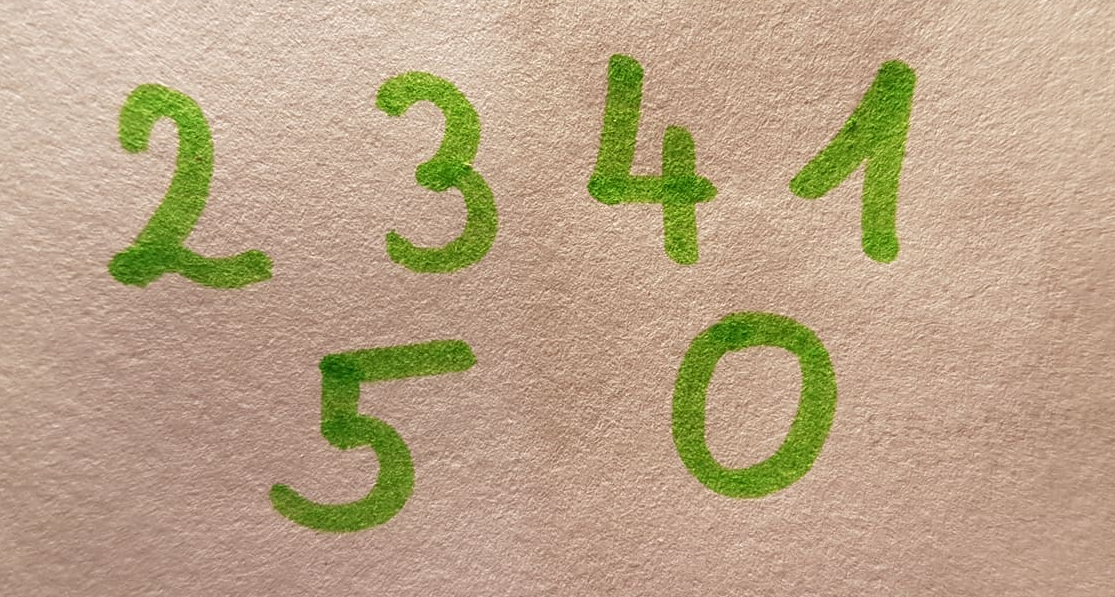 2 3 4 1
5 0